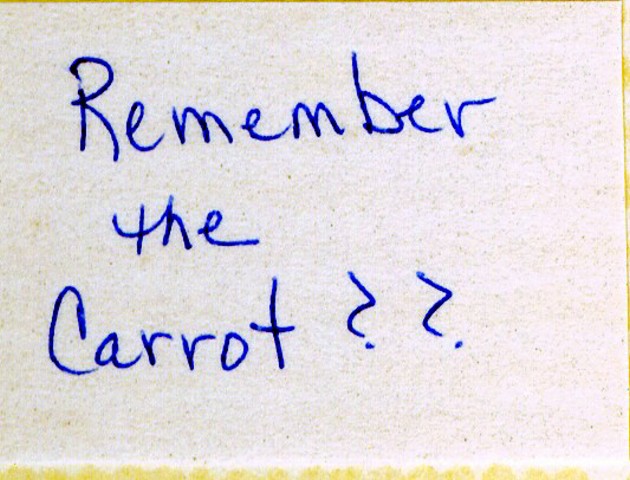 Remember
the
Carrot ??